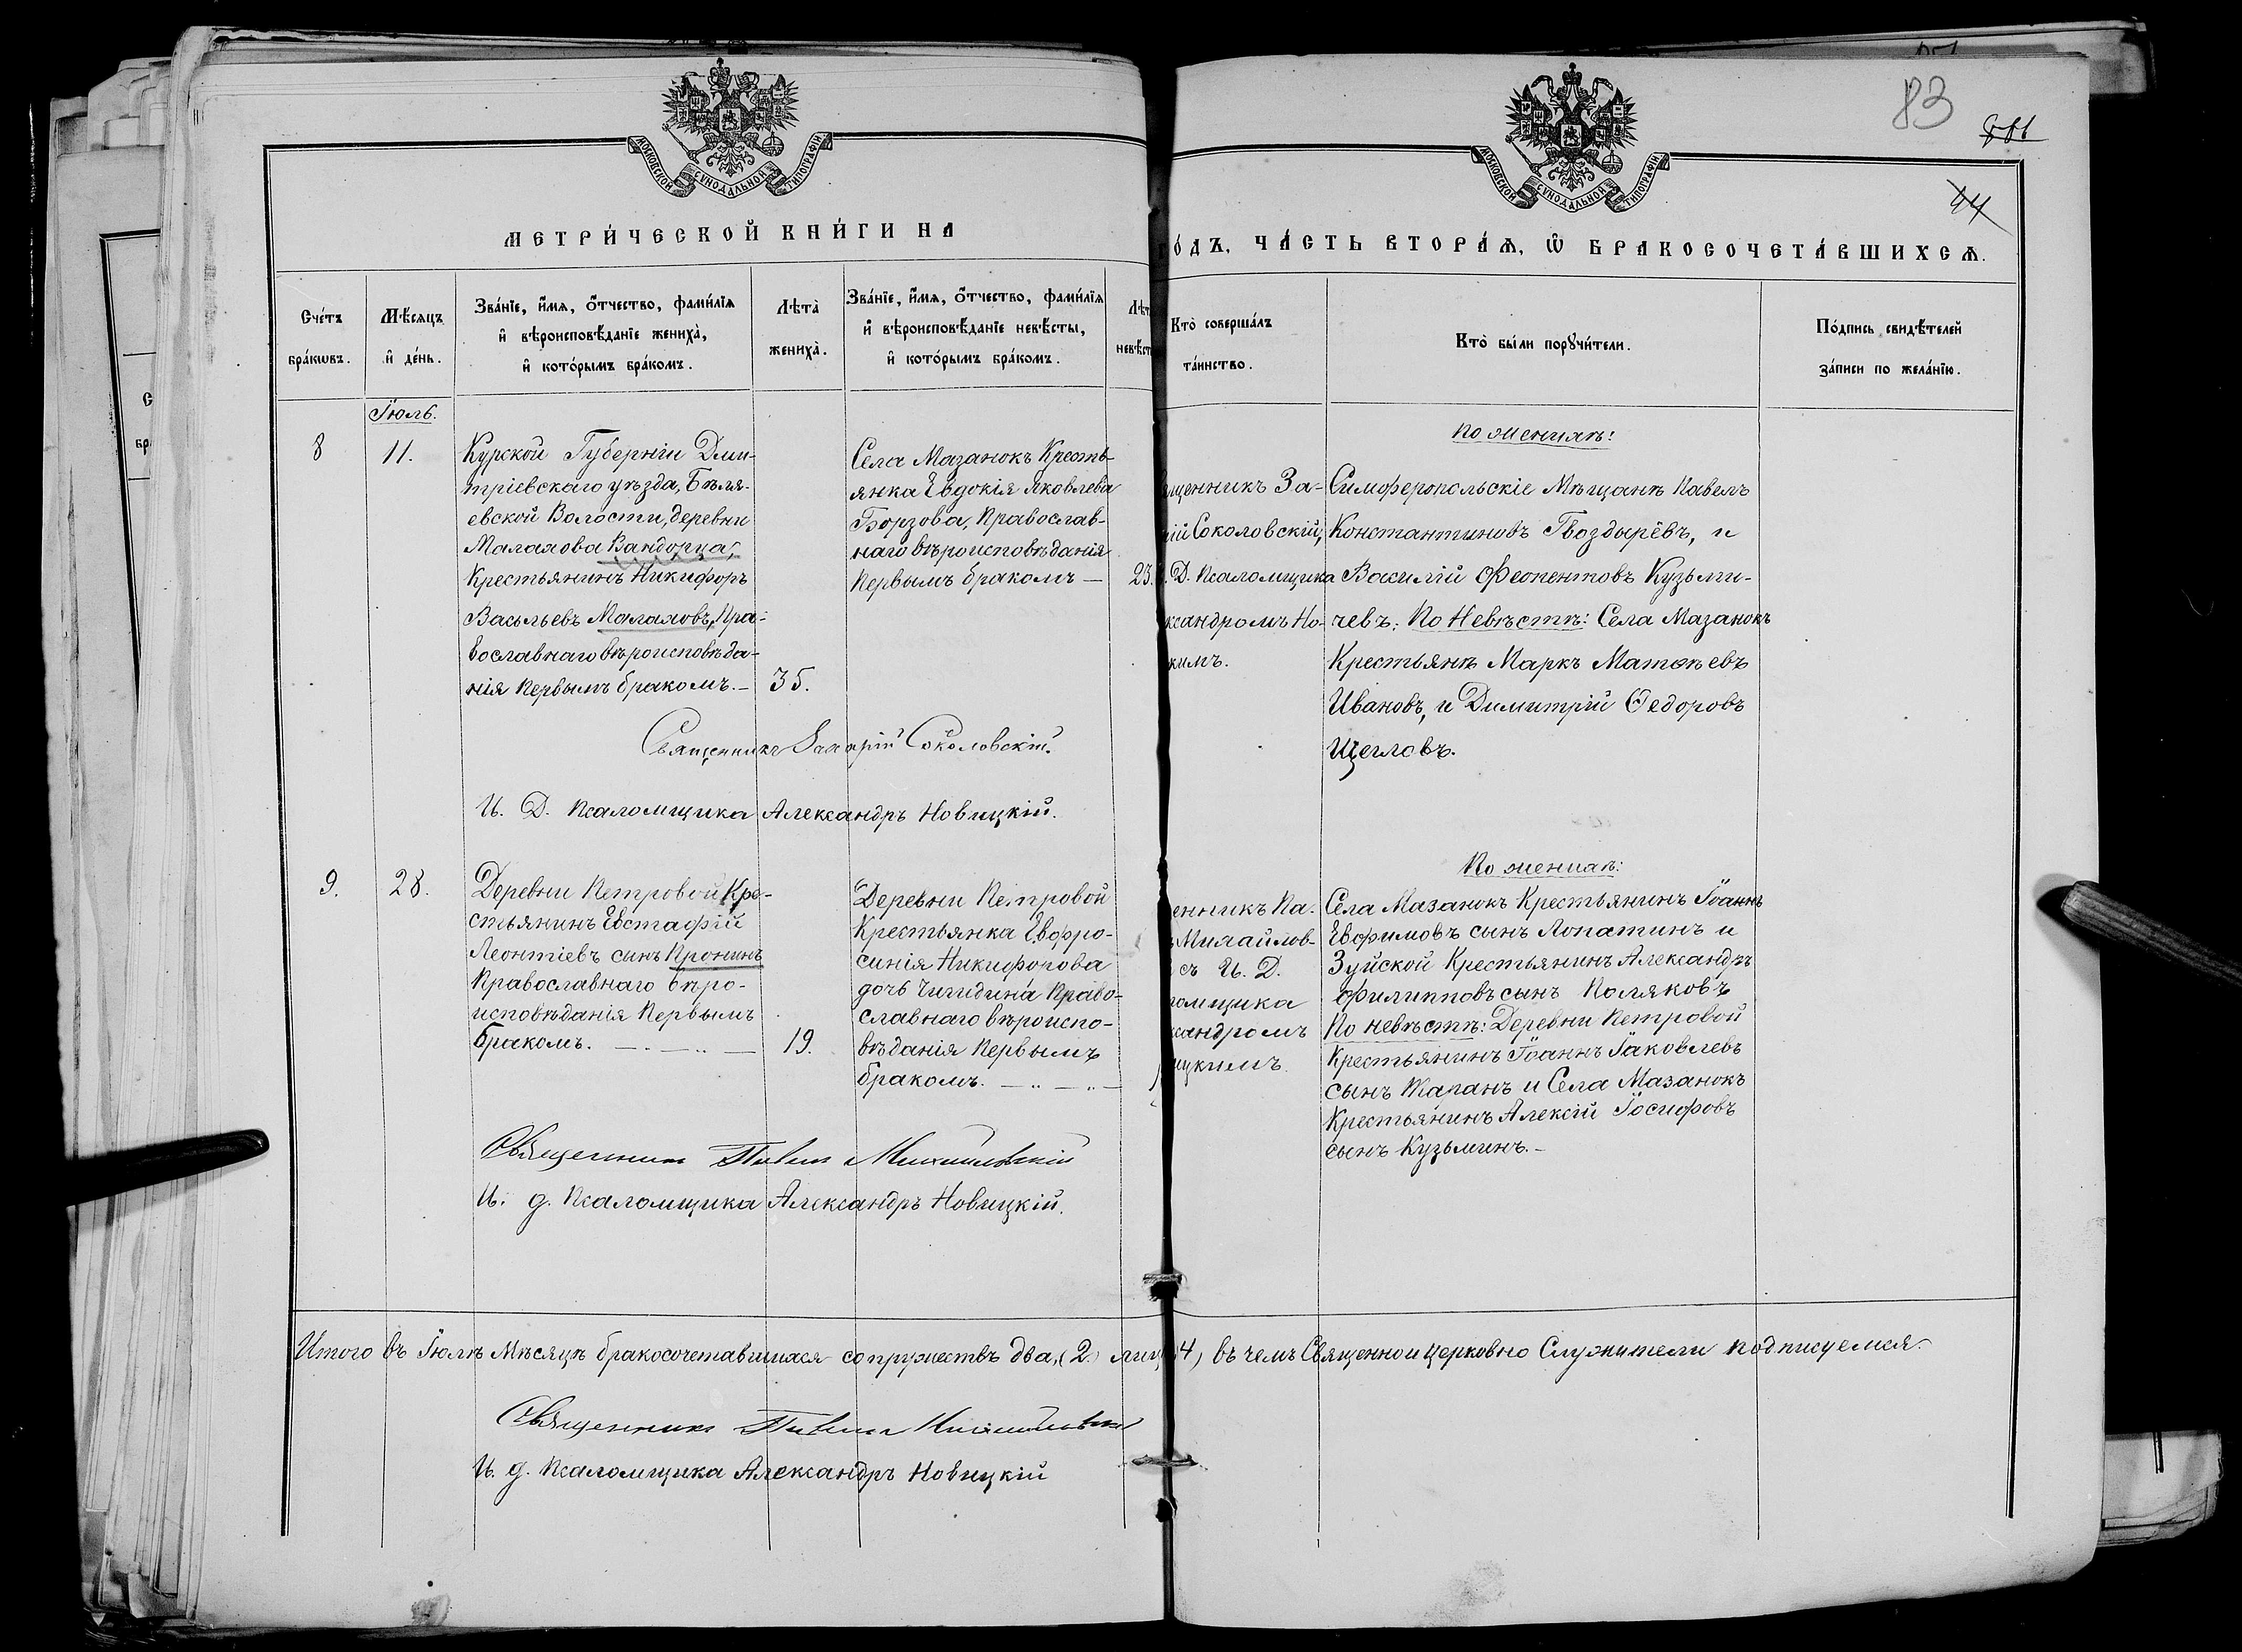 83
44
МОСКОВСКОЙ СѴНОДАЛЬНОЙ ТИПОГРАФІИ
МОСКОВСКОЙ СѴНОДАЛЬНОЙ ТИПОГРАФІИ
МЕТРИ́ЧЕСКОЙ КНИ́ГИ НА
О́ДЪ, ЧА́СТЬ ВТОРА́Ѧ, Ѿ БРАКОСОЧЕТА́ВШИХСѦ.
Сче́тъ
бра́кѡвъ.
Мѣ́сяцъ
и̂ де́нь.
Зва́нїе, и́мѧ, о́тчество, фами́лїѧ
и̂ вѣроисповѣ́данїе жениха̀,
и̂ кото́рымъ бра́комъ.
Лѣта̀
жениха̀.
Зва́нїе, и́мѧ, о́тчество, фами́лїѧ
и̂ вѣроисповѣ́данїе невѣ́сты,
и̂ кото́рымъ бра́комъ.
Лѣт
невѣ́ст
Кто̀ соверша́лъ
та́инство.
Кто̀ бы́ли порꙋчи́тели.
По́дпись свидѣ́телей
за́писи по жела́нїю.
Іюль.
8
11.
Курской Губерніи Дми-
тріевскаго уѣзда, Бѣля-
евской Волости, деревни
Малахова Вандорца,
Крестьянинъ Никифоръ
Васильевъ Малаховъ, Пра-
вославнаго вѣроисповѣда-
нія Первымъ бракомъ.—
35.
Села Мазанокъ Кресть-
янка Евдокія Яковлева
Борзова, Православ-
наго вѣроисповѣданія
Первымъ бракомъ —
23.
ященникъ За-
рій Соколовскій,
. Д. Псаломщика
ксандромъ Но-
кимъ.
По женихѣ:
Симферопольскіе Мѣщанѣ Павелъ
Константиновъ Гвоздырёвъ, и
Василій Феопентовъ Кузьми-
чевъ; По Невѣстѣ: Села Мазанокъ
Крестьянѣ Маркъ Матвѣевъ
Ивановъ, и Димитрій Ѳедоровъ
Щегловъ.
Священникъ Захарій Соколовскій.
И. Д. Псаломщика Александръ Новицкій.
9.
28.
Деревни Петровой Кре-
стьянинъ Евстафій
Леонтіевъ сынъ Пронинъ
Православнаго вѣро-
исповѣданія Первымъ
Бракомъ. — . — .. —
19.
Деревни Петровой
Крестьянка Евфро-
синія Никифорова
дочь Чигидина Право-
славнаго вѣроиспо-
вѣданія Первымъ
бракомъ. — .. — .. —
енникъ Па-
Михайлов-
съ И. Д.
ломщика
ксандромъ
ицкимъ
По женихѣ:
Села Мазанокъ Крестьянинъ Іоаннъ
Евфимовъ сынъ Лопатинъ и
Зуйской Крестьянинъ Александръ
Филипповъ сынъ Поляковъ
По невѣстѣ: Деревни Петровой
Крестьянинъ Іоаннъ Іаковлевъ
сынъ Жаранъ и Села Мазанокъ
Крестьянинъ Алексій Іосифовъ
сынъ Кузьминъ.—
Священникъ Павелъ Михайловскій
И. д. Псаломщика Александръ Новицкій.
Итого въ Іюлѣ Мѣсяцѣ бракосочетавшихся сопружествъ два, (2.) лиц 4) въ чемъ Священно и Церковно Служители подписуемся.
Священникъ Павелъ Михайловскій
И. д. Псаломщика Александръ Новицкій